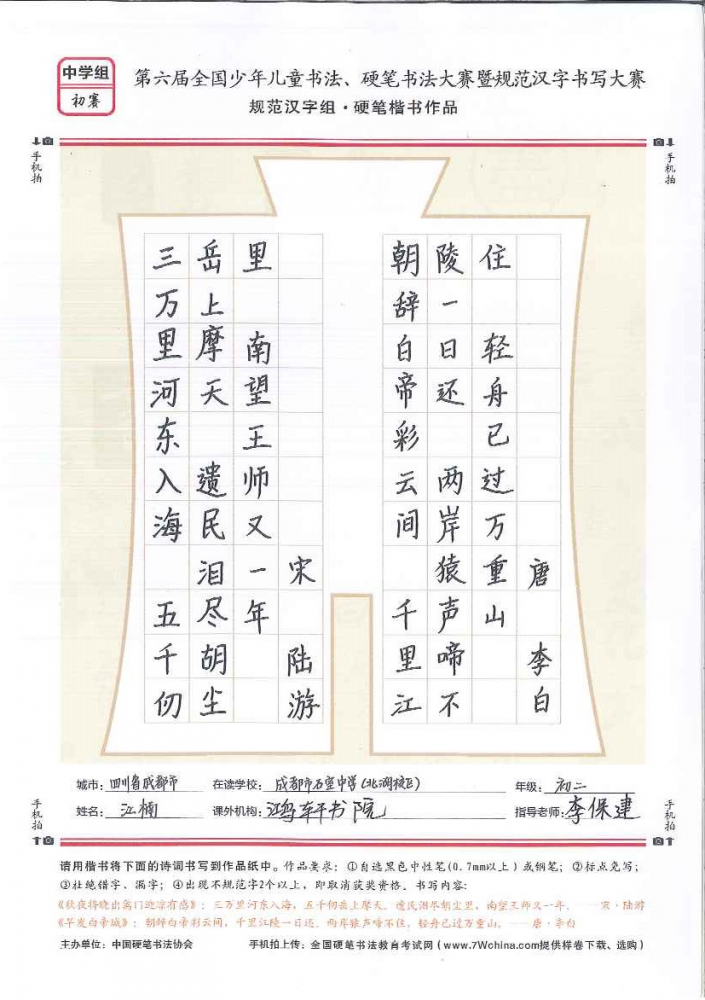 中学组
初赛
第六届全国少年儿童书法、硬笔书法大赛暨规范汉字书写大赛
规范汉字组·硬笔楷书作品
手机拍
手机拍
三万里河东入海 五千仞
岳上摩天 遗民泪尽胡尘
里 南望王师又一年
宋 陆游
朝辞白帝彩云间 千里江
陵一日还 两岸猿声啼不
住 轻舟已过万重山
唐 李白
城市：四川省成都市 在读学校：成都市石室中学（北湖校区） 年级：初二
姓名：江楠 课外机构：鸿轩书院 指导老师：李保建
手机拍
手机拍
请用楷书将下面的诗词书写到作品纸中。作品要求：①自选黑色中性笔(0.7mm以上)或钢笔；②标点免写；
③杜绝错字、漏字；④出现不规范字2个以上，即取消获奖资格。书写内容：
《秋夜将晓出篱门迎凉有感》：三万里河东入海，五千仞岳上摩天。遗民泪尽胡尘里，南望王师又一年。——宋·陆游
《早发白帝城》：朝辞白帝彩云间，千里江陵一日还。两岸猿声啼不住，轻舟已过万重山。——唐·李白
主办单位：中国硬笔书法协会 手机拍上传：全国硬笔书法教育考试网（www.7Wchina.com提供样卷下载、选购）